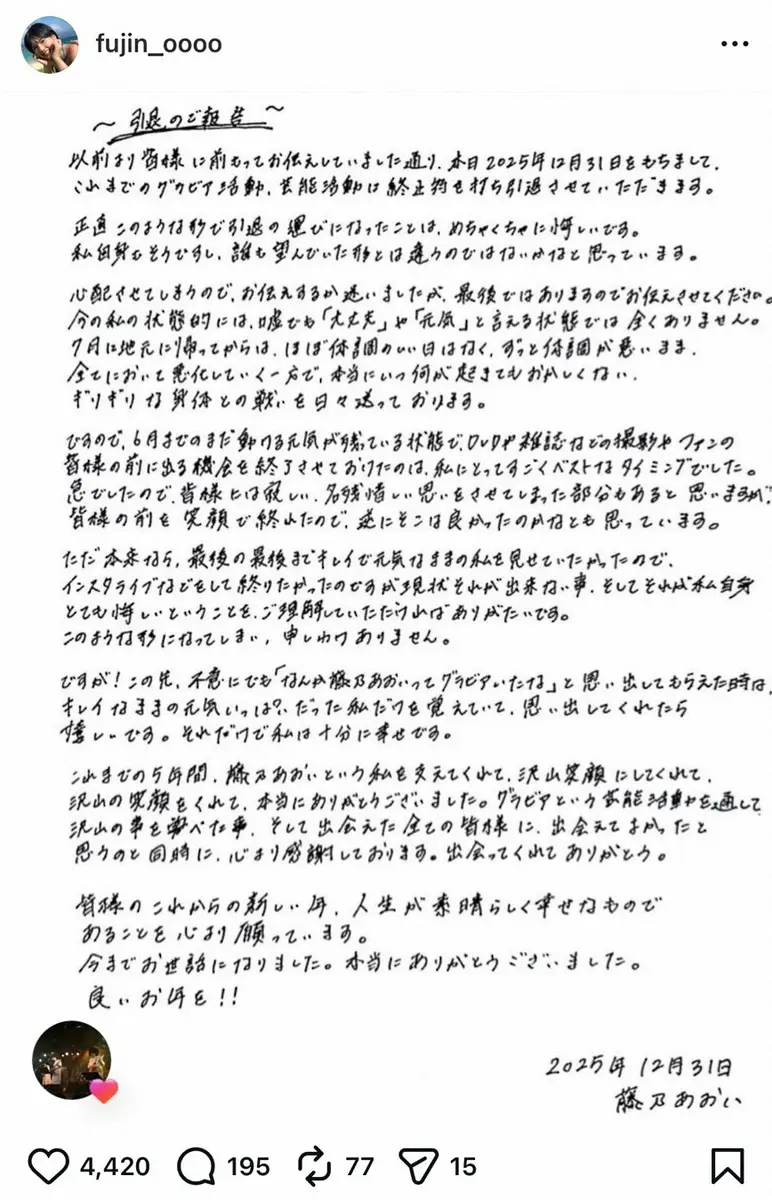 fujin_oooo
～引退のご報告～
以前より皆様に前もってお伝えしていました通り、本日2025年12月31日をもちまして、
これまでのグラビア活動、芸能活動は終止符を打ち引退させていただきます。
正直このような形で引退の運びになったことは、めちゃくちゃに悔しいです。
私自身もそうですし、誰も望んでいた形とは違うのではないかなと思っています。
心配させてしまうので、お伝えするか迷いましたが、最後ではありますのでお伝えさせてください。
今の私の状態的には、嘘でも「大丈夫」や「元気」と言える状態では全くありません。
7月に地元に帰ってからは、ほぼ体調のいい日はなく、ずっと体調が悪いまま、
全てにおいて悪化していく一方で、本当にいつ何が起きてもおかしくない、
ギリギリな身体との戦いを日々送っております。
ですので、6月までのまだ動ける元気が残っている状態で、DVDや雑誌などの撮影やファンの
皆様の前に出る機会を終了させておけたのは、私にとってすごくベストなタイミングでした。
急でしたので、皆様には寂しい、名残惜しい思いをさせてしまった部分もあると思いますが、
皆様の前を笑顔で終れたので、逆にそこは良かったのかなとも思っています。
ただ本来なら、最後の最後までキレイで元気なままの私を見せていたかったので、
インスタライブなどをして終りたかったのですが現状それが出来ない事、そしてそれが私自身
とても悔しいということを、ご理解していただければありがたいです。
このような形になってしまい、申しわけありません。
ですが！この先、不意にでも「なんか藤乃あおいってグラビアいたな」と思い出してもらえた時は、
キレイなままの元気いっぱい？だった私だけを覚えていて、思い出してくれたら
嬉しいです。それだけで私は十分に幸せです。
これまでの5年間、藤乃あおいという私を支えてくれて、沢山笑顔にしてくれて、
沢山の笑顔をくれて、本当にありがとうございました。グラビアという芸能活動を通して
沢山の事を学べた事、そして出会えた全ての皆様に、出会えてよかったと
思うのと同時に、心より感謝しております。出会ってくれてありがとう。
皆様のこれからの新しい年、人生が素晴らしく幸せなもので
あることを心より願っています。
今までお世話になりました。本当にありがとうございました。
良いお年を！！
2025年12月31日
藤乃あおい
4,420 195 77 15